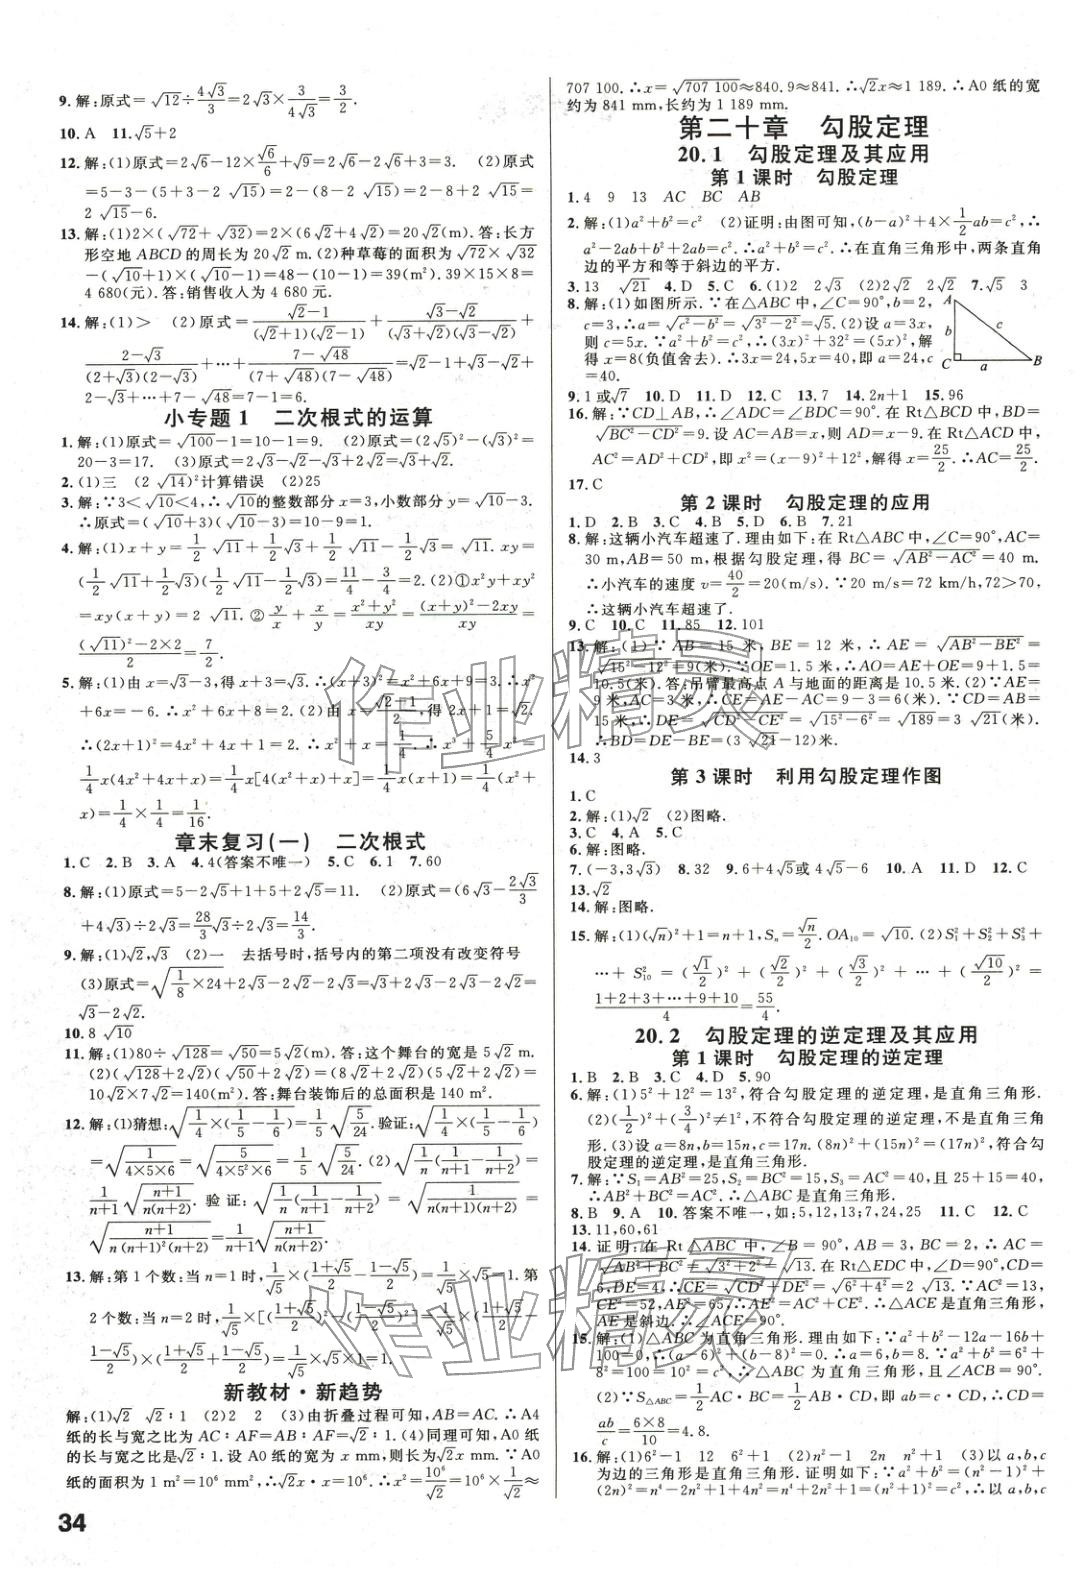 9.解:原式=√12÷4√3/3=2√3×3/(4√3)=3/2.
10.A 11.√5+2
12.解:(1)原式=2√6-12×√6/6+√9=2√6-2√6+3=3. (2)原式
=5-3-(5+3-2√15)=5-3-8+2√15=2-8+2√15=
2√15-6.
13.解:(1)2×(√72+√32)=2×(6√2+4√2)=20√2(m).答:长方
形空地ABCD的周长为20√2 m.(2)种草莓的面积为√72×√32
-(√10+1)×(√10-1)=48-(10-1)=39(m²).39×15×8=
4 680(元).答:销售收入为4 680元.
14.解:(1)> (2)原式=(√2-1)/((√2+1)(√2-1))+(√3-√2)/((√3+√2)(√3-√2))+
(2-√3)/((2+√3)(2-√3))+…+(7-√48)/((7+√48)(7-√48))=√2-1+√3-√2+
2-√3+…+7-√48=7-1=6.
小专题1 二次根式的运算
1.解:(1)原式=√100-1=10-1=9. (2)原式=(2√5)²-(√3)²=
20-3=17. (3)原式=2√3-√2-√3+2√2=√3+√2.
2.(1)三 (2√14)²计算错误 (2)25
3.解:∵3<√10<4,∴√10的整数部分x=3,小数部分y=√10-3.
∴原式=(√10+3)(√10-3)=10-9=1.
4.解:(1)x+y=1/2√11+1/2√3+1/2√11-1/2√3=√11. xy=
(1/2√11+1/2√3)(1/2√11-1/2√3)=11/4-3/4=2.(2)①x²y+xy²=
xy(x+y)=2√11. ②y/x+x/y=(x²+y²)/xy=((x+y)²-2xy)/xy=
((√11)²-2×2)/2=7/2.
5.解:(1)由x=√3-3,得x+3=√3.∴(x+3)²=x²+6x+9=3.∴x²
+6x=-6.∴x²+6x+8=2.(2)由x=(√2-1)/2,得2x+1=√2.
∴(2x+1)²=4x²+4x+1=2.∴x²+x=1/4.∴x³+5/4x²+
1/4x=1/4(4x³+5x²+x)=1/4x[4(x²+x)+x+1]=1/4(x²+
x)=1/4×1/4=1/16.
章末复习(一) 二次根式
1.C 2.B 3.A 4.4(答案不唯一) 5.C 6.1 7.60
8.解:(1)原式=5-2√5+1+5+2√5=11. (2)原式=(6√3-2√3/3
+4√3)÷2√3=28/3√3÷2√3=14/3.
9.解:(1)√2,√3 (2)一 去括号时,括号内的第二项没有改变符号
(3)原式=√(1/8×24)+2√3-2√2-2√3=√3+2√3-2√2-2√3=
√3-2√2.
10.8 √10
11.解:(1)80÷√128=√50=5√2(m).答:这个舞台的宽是5√2 m.
(2)(√128+2√2)(√50+2√2)=(8√2+2√2)(5√2+2√2)=
10√2×7√2=140(m²).答:舞台装饰后的总面积是140 m².
12.解:(1)猜想:√(1/4×(1/5-1/6))=1/5√(5/24).验证:√(1/4×(1/5-1/6))
=√(1/(4×5×6))=√(5/(4×5²×6))=1/5√(5/24).(2)√(1/n(1/(n+1)-1/(n+2)))=
1/(n+1)√((n+1)/(n(n+2))). 验证:√(1/n×(1/(n+1)-1/(n+2)))=√(1/(n(n+1)(n+2)))=
√((n+1)/(n(n+1)²(n+2)))=1/(n+1)√((n+1)/(n(n+2))).
13.解:第1个数:当n=1时,1/√5×((1+√5)/2-(1-√5)/2)=1/√5×√5=1.第
2个数:当n=2时,1/√5×[((1+√5)/2)²-((1-√5)/2)²]=1/√5×((1+√5)/2-
(1-√5)/2)×((1+√5)/2+(1-√5)/2)=1/√5×√5×1=1.
新教材·新趋势
解:(1)√2 √2∶1 (2)2 2 (3)由折叠过程可知,AB=AC.∴A4
纸的长与宽之比为AC∶AF=AB∶AF=√2∶1.(4)同理可知,A0
纸的长与宽之比是√2∶1.设A0纸的宽为x mm,则长为√2x mm.∵A0
纸的面积为1 m²=10⁶ mm²,∴√2x·x=10⁶.∴x²=10⁶/√2=10⁶×1/√2≈
34
707 100.∴x=√707 100≈840.9≈841.∴√2x≈1 189.∴A0纸的宽
约为841 mm,长约为1 189 mm.
第二十章 勾股定理
20.1 勾股定理及其应用
第1课时 勾股定理
1.4 9 13 AC BC AB
2.解:(1)a²+b²=c² (2)证明:由图可知,(b-a)²+4×1/2ab=c²,∴
a²-2ab+b²+2ab=c².∴a²+b²=c².∴在直角三角形中,两条直角
边的平方和等于斜边的平方.
3.13 √21 4.D 5.C 6.(1)2 2√3 (2)2√2 2√2 7.√5 3
8.解:(1)如图所示.∵在△ABC中,∠C=90°,b=2,
c=3,∴a=√(c²-b²)=√(3²-2²)=√5.(2)设a=3x,
则c=5x.∵a²+b²=c²,∴(3x)²+32²=(5x)²,解
得x=8(负值舍去).∴3x=24,5x=40,即a=24,c
=40.
A b c C a B
9.1或√7 10.D 11.D 12.D 13.C 14.2n+1 15.96
16.解:∵CD⊥AB,∴△ADC=∠BDC=90°.在Rt△BCD中,BD=
√(BC²-CD²)=9.设AC=AB=x,则AD=x-9.在Rt△ACD中,
AC²=AD²+CD²,即x²=(x-9)²+12²,解得x=25/2.∴AC=25/2.
17.C
第2课时 勾股定理的应用
1.D 2.B 3.C 4.B 5.D 6.B 7.21
8.解:这辆小汽车超速了.理由如下:在Rt△ABC中,∠C=90°,AC=
30 m,AB=50 m,根据勾股定理,得BC=√(AB²-AC²)=40 m.
∴小汽车的速度v=40/2=20(m/s).∵20 m/s=72 km/h,72>70,
∴这辆小汽车超速了.
9.C 10.C 11.85 12.101
13.解:(1)∵AB=15米,BE=12米,∴AE=√(AB²-BE²)=
√(15²-12²)=9(米).∵OE=1.5米,∴AO=AE+OE=9+1.5=
10.5(米).答:吊臂最高点A与地面的距离是10.5米.(2)∵AE=
9米,AC=3米,∴CE=AE-AC=9-3=6(米).∵CD=AB=
15米,∴DE=√(CD²-CE²)=√(15²-6²)=√189=3√21(米).
∴BD=DE-BE=(3√21-12)米.
14.3
第3课时 利用勾股定理作图
1.C
2.解:(1)√2 (2)图略.
3.C 4.A 5.C
6.解:图略.
7.(-3,3√3) 8.32 9.6+4√5或4√5-6 10.A 11.D 12.C
13.√2
14.解:图略.
15.解:(1)(√n)²+1=n+1,Sₙ=√n/2.OA₁₀=√10.(2)S₁²+S₂²+S₃²+
…+S₁₀²=(√1/2)²+(√2/2)²+(√3/2)²+…+(√10/2)²=
(1+2+3+…+9+10)/4=55/4.
20.2 勾股定理的逆定理及其应用
第1课时 勾股定理的逆定理
1.B 2.B 3.C 4.D 5.90
6.解:(1)5²+12²=13²,符合勾股定理的逆定理,是直角三角形.
(2)(1/2)²+(3/4)²≠1²,不符合勾股定理的逆定理,不是直角三角
形.(3)设a=8n,b=15n,c=17n.(8n)²+(15n)²=(17n)²,符合勾
股定理的逆定理,是直角三角形.
7.解:∵S₁=AB²=25,S₂=BC²=15,S₃=AC²=40,且25+15=40,
∴AB²+BC²=AC².∴△ABC是直角三角形.
8.B 9.A 10.答案不唯一,如:5,12,13;7,24,25 11.C 12.C
13.11,60,61
14.证明:在Rt△ABC中,∠B=90°,AB=3,BC=2,∴AC=
√(AB²+BC²)=√(3²+2²)=√13.在Rt△EDC中,∠D=90°,CD=
6,DE=4,∴CE=√(CD²+DE²)=√(6²+4²)=2√13.∵AC²=13,
CE²=52,AE²=65,∴AE²=AC²+CE².∴△ACE是直角三角形,
AE是斜边.∴∠ACE=90°.
15.解:(1)△ABC为直角三角形.理由如下:∵a²+b²-12a-16b+
100=0,∴(a-6)²+(b-8)²=0.∴a=6,b=8.∵c=10,∴a²+b²=6²
+8²=100=c².∴△ABC为直角三角形,且∠ACB=90°.
(2)∵S△ABC=1/2AC·BC=1/2AB·CD,即ab=c·CD,∴CD=
ab/c=(6×8)/10=4.8.
16.解:(1)6²-1 12 6²+1 (2)n²-1 2n n²+1 (3)以a,b,c
为边的三角形是直角三角形.证明如下:∵a²+b²=(n²-1)²+
(2n)²=n⁴-2n²+1+4n²=n⁴+2n²+1=(n²+1)²=c²,∴以a,b,c
作业精灵
作业精灵